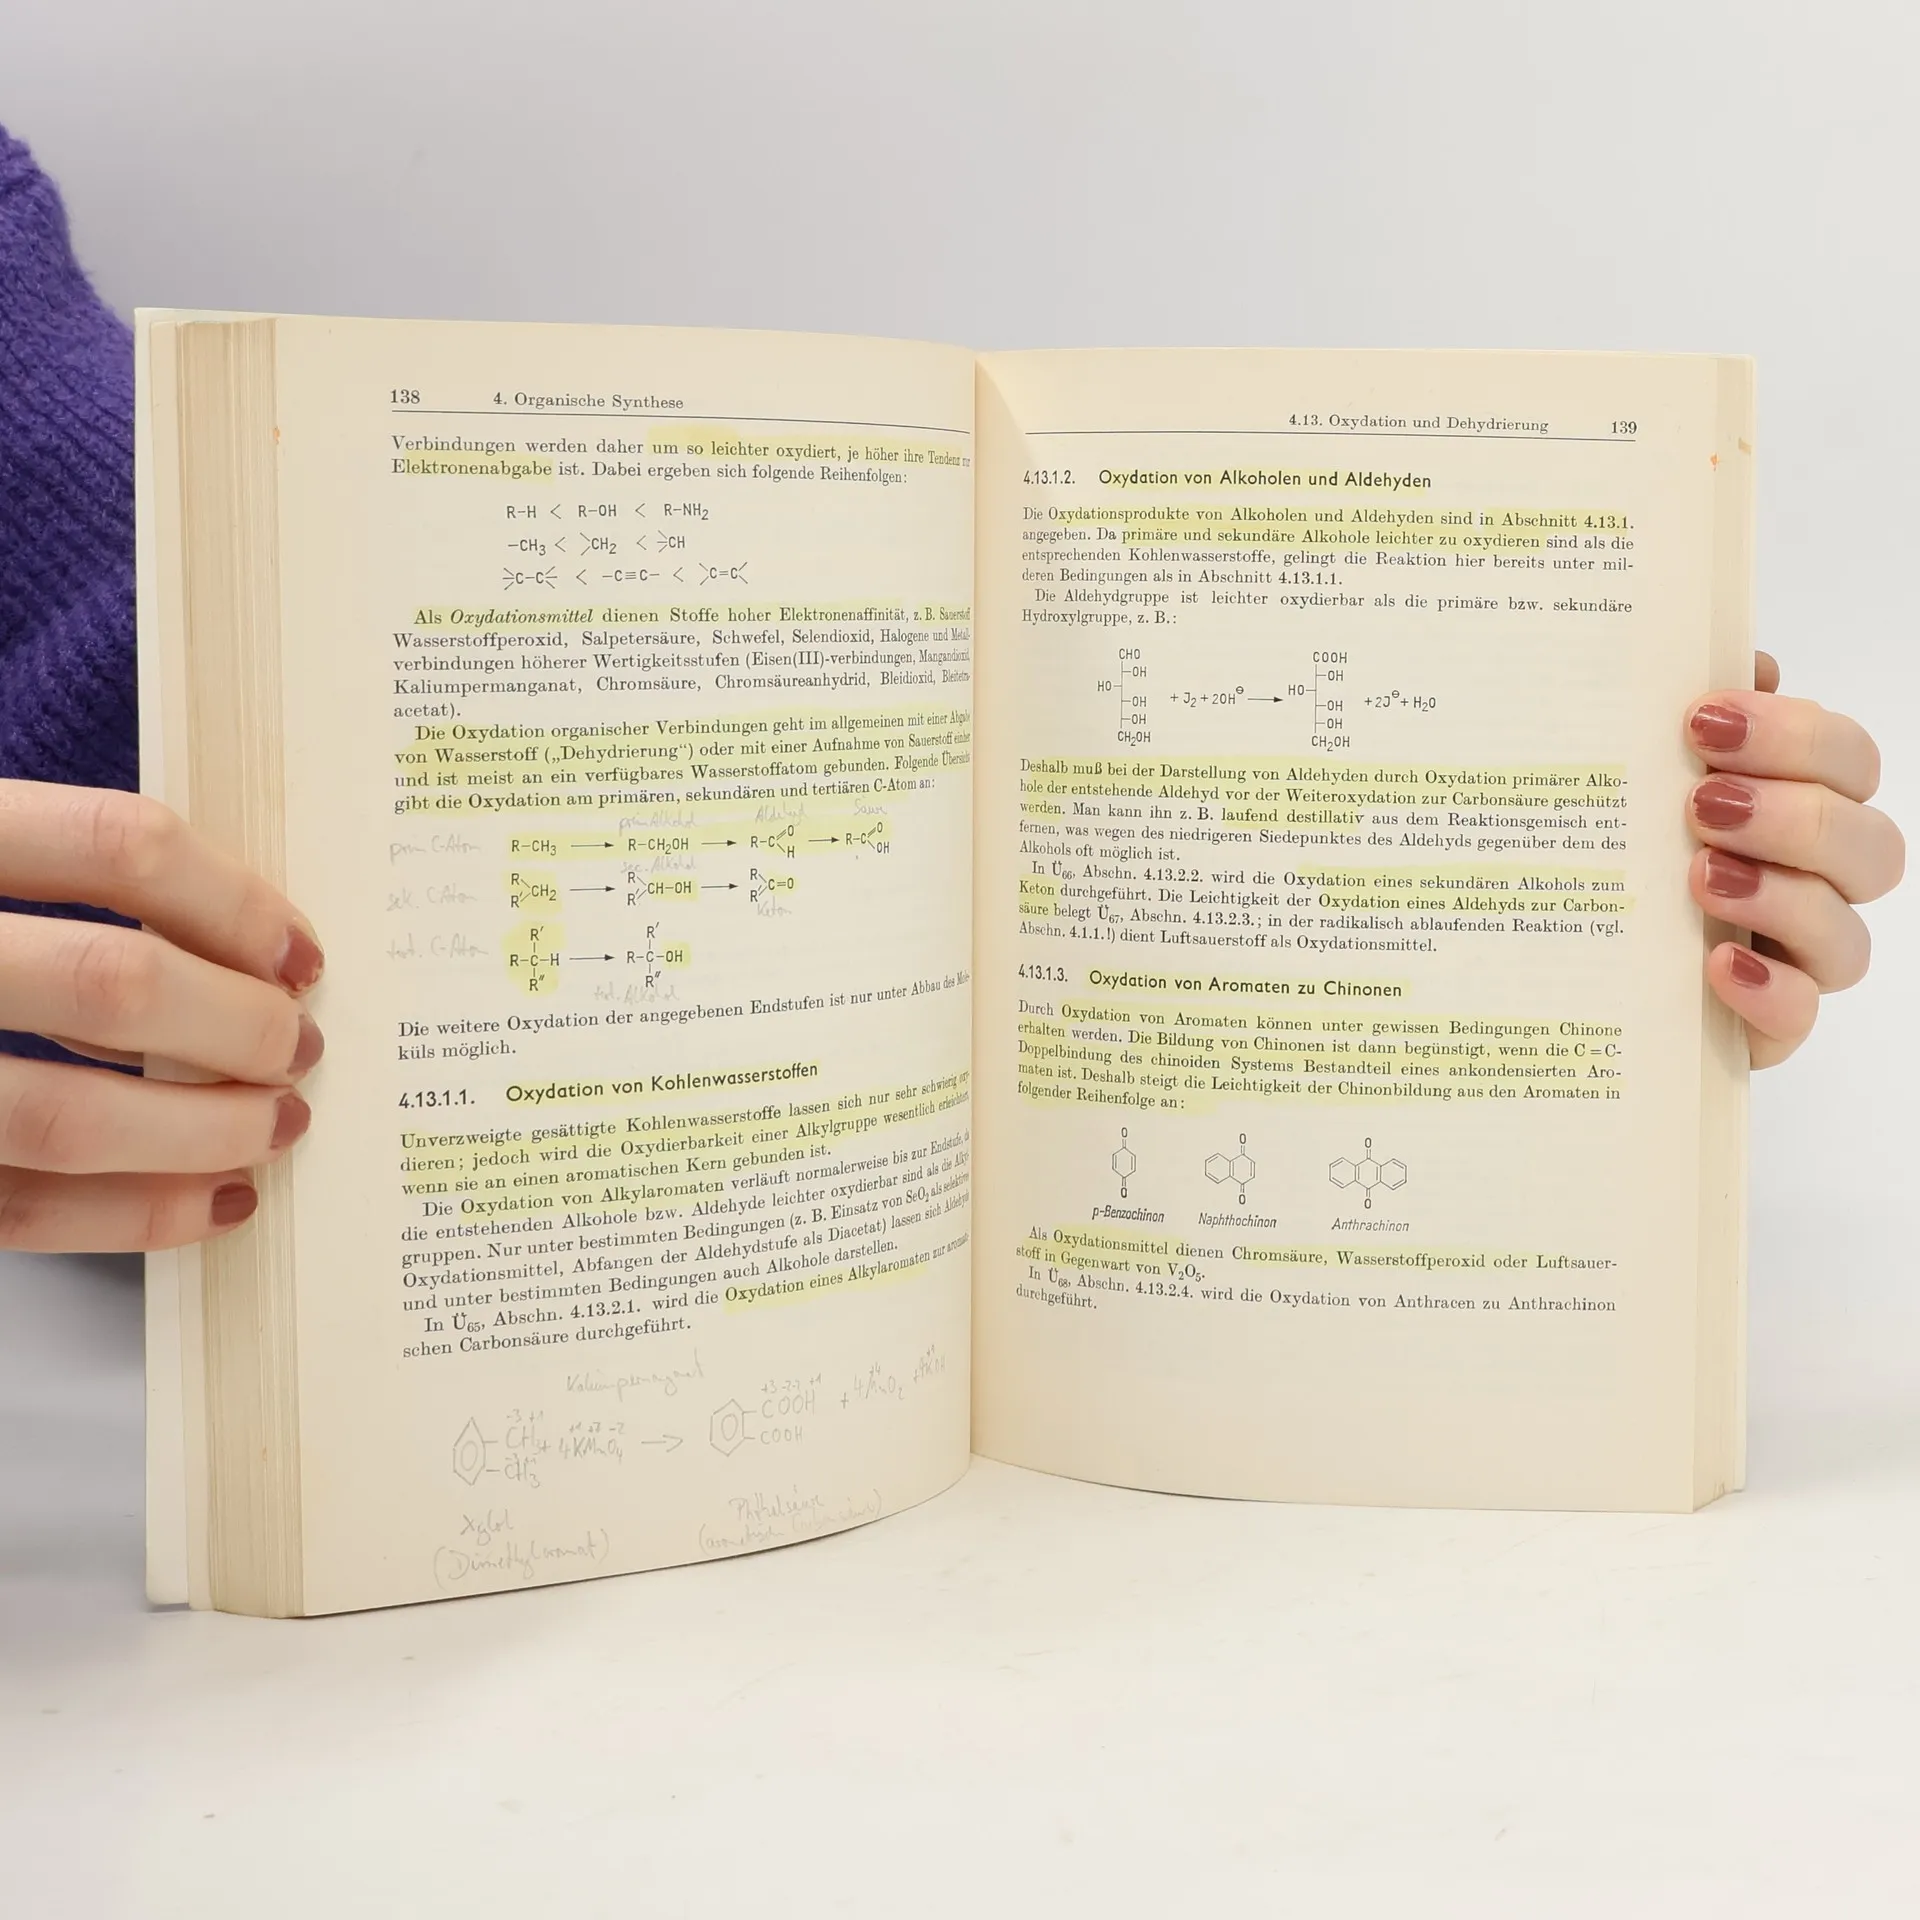 138 4. Organische Synthese
Verbindungen werden daher um so leichter oxydiert, je höher ihre Tendenz zur
Elektronenabgabe ist. Dabei ergeben sich folgende Reihenfolgen:
R–H < R–OH < R–NH₂
–CH₃ < >CH₂ < >CH
>C–C< < –C≡C– < >C=C<
Als Oxydationsmittel dienen Stoffe hoher Elektronenaffinität, z. B. Sauerstoff
Wasserstoffperoxid, Salpetersäure, Schwefel, Selendioxid, Halogene und Metall-
verbindungen höherer Wertigkeitsstufen (Eisen(III)-verbindungen, Mangandioxid,
Kaliumpermanganat, Chromsäure, Chromsäureanhydrid, Bleidioxid, Bleitetra-
acetat).
Die Oxydation organischer Verbindungen geht im allgemeinen mit einer Abgabe
von Wasserstoff („Dehydrierung“) oder mit einer Aufnahme von Sauerstoff einher
und ist meist an ein verfügbares Wasserstoffatom gebunden. Folgende Übersicht
gibt die Oxydation am primären, sekundären und tertiären C-Atom an:
prim. Alkohol Aldehyd Säure
prim C-Atom R–CH₃ → R–CH₂OH → R–C O H → R–C O OH
sec. Alkohol
sek. C-Atom R R' CH₂ → R R' CH–OH → R R' C=O
Keton
tert. C-Atom R' R–C–H R" → R' R–C–OH R"
tert. Alkohol
Die weitere Oxydation der angegebenen Endstufen ist nur unter Abbau des Mole-
küls möglich.
4.13.1.1. Oxydation von Kohlenwasserstoffen
Unverzweigte gesättigte Kohlenwasserstoffe lassen sich nur sehr schwierig oxy-
dieren; jedoch wird die Oxydierbarkeit einer Alkylgruppe wesentlich erleichtert,
wenn sie an einen aromatischen Kern gebunden ist.
Die Oxydation von Alkylaromaten verläuft normalerweise bis zur Endstufe, da
die entstehenden Alkohole bzw. Aldehyde leichter oxydierbar sind als die Alkyl-
gruppen. Nur unter bestimmten Bedingungen (z. B. Einsatz von SeO₂ als selektives
Oxydationsmittel, Abfangen der Aldehydstufe als Diacetat) lassen sich Aldehyde
und unter bestimmten Bedingungen auch Alkohole darstellen.
In Ü₆₅, Abschn. 4.13.2.1. wird die Oxydation eines Alkylaromaten zur aromati-
schen Carbonsäure durchgeführt.
Kaliumpermanganat
-3 +1 +1 +7 -2 +3 -2 -2 +1 +4 +1
CH₃ + 4KMnO₄ → COOH + 4MnO₂ + 4KOH
CH₃ COOH
Xylol Phthalsäure
(Dimethylaromat) (aromatische Carbonsäure)
4.13. Oxydation und Dehydrierung 139
4.13.1.2. Oxydation von Alkoholen und Aldehyden
Die Oxydationsprodukte von Alkoholen und Aldehyden sind in Abschnitt 4.13.1.
angegeben. Da primäre und sekundäre Alkohole leichter zu oxydieren sind als die
entsprechenden Kohlenwasserstoffe, gelingt die Reaktion hier bereits unter mil-
deren Bedingungen als in Abschnitt 4.13.1.1.
Die Aldehydgruppe ist leichter oxydierbar als die primäre bzw. sekundäre
Hydroxylgruppe, z. B.:
CHO COOH
–OH –OH
HO– HO–
–OH + J₂ + 2OH⊖ → –OH + 2J⊖ + H₂O
–OH –OH
CH₂OH CH₂OH
Deshalb muß bei der Darstellung von Aldehyden durch Oxydation primärer Alko-
hole der entstehende Aldehyd vor der Weiteroxydation zur Carbonsäure geschützt
werden. Man kann ihn z. B. laufend destillativ aus dem Reaktionsgemisch ent-
fernen, was wegen des niedrigeren Siedepunktes des Aldehyds gegenüber dem des
Alkohols oft möglich ist.
In Ü₆₆, Abschn. 4.13.2.2. wird die Oxydation eines sekundären Alkohols zum
Keton durchgeführt. Die Leichtigkeit der Oxydation eines Aldehyds zur Carbon-
säure belegt Ü₆₇, Abschn. 4.13.2.3.; in der radikalisch ablaufenden Reaktion (vgl.
Abschn. 4.1.1.!) dient Luftsauerstoff als Oxydationsmittel.
4.13.1.3. Oxydation von Aromaten zu Chinonen
Durch Oxydation von Aromaten können unter gewissen Bedingungen Chinone
erhalten werden. Die Bildung von Chinonen ist dann begünstigt, wenn die C = C-
Doppelbindung des chinoiden Systems Bestandteil eines ankondensierten Aro-
maten ist. Deshalb steigt die Leichtigkeit der Chinonbildung aus den Aromaten in
folgender Reihenfolge an:
O O O
O O O
p-Benzochinon Naphthochinon Anthrachinon
Als Oxydationsmittel dienen Chromsäure, Wasserstoffperoxid oder Luftsauer-
stoff in Gegenwart von V₂O₅.
In Ü₆₈, Abschn. 4.13.2.4. wird die Oxydation von Anthracen zu Anthrachinon
durchgeführt.